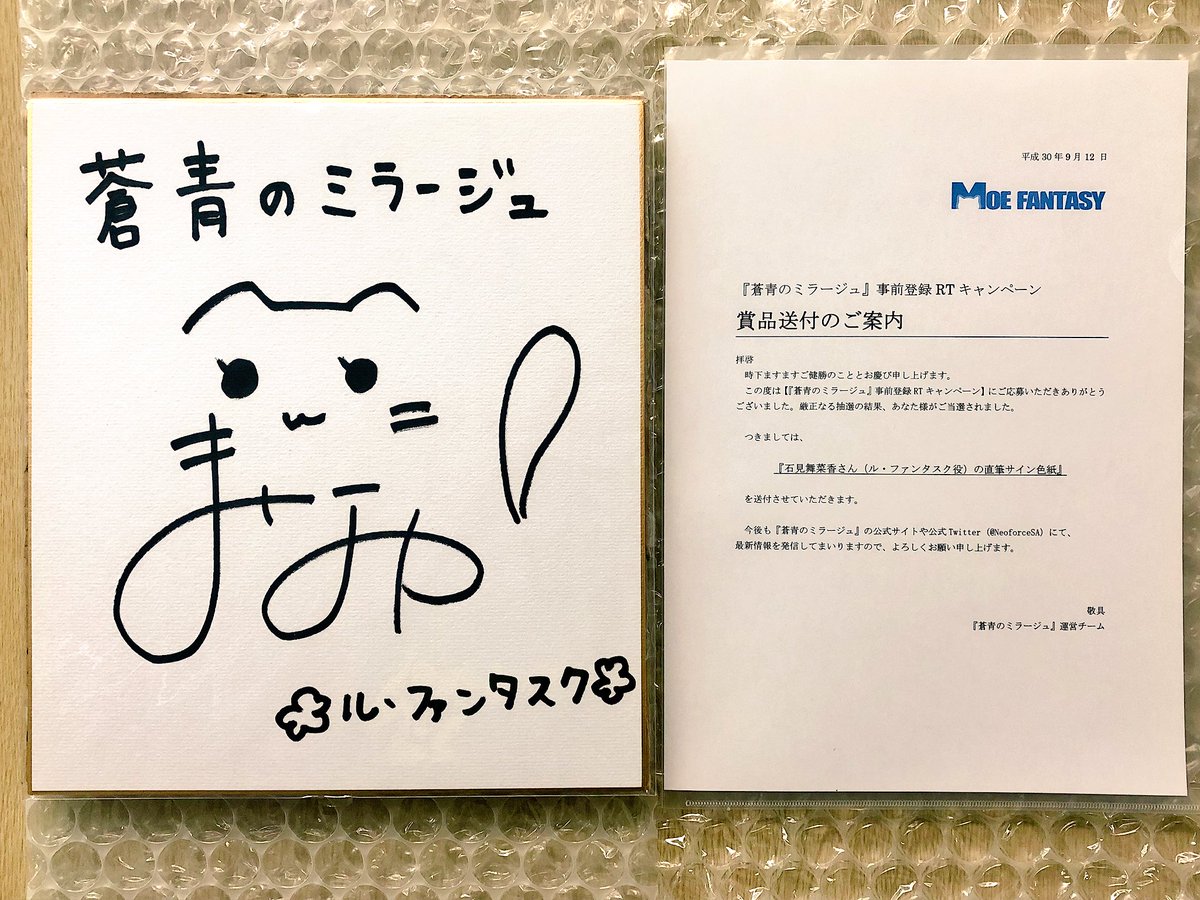 蒼青のミラージュ
まなか
ル・ファンタスク
平成30年9月12日
MOE FANTASY
『蒼青のミラージュ』事前登録RTキャンペーン
賞品送付のご案内
拝啓
時下ますますご健勝のこととお慶び申し上げます。
この度は【『蒼青のミラージュ』事前登録RTキャンペーン】にご応募いただきありがとう
ございました。厳正なる抽選の結果、あなた様がご当選されました。
つきましては、
『石見舞菜香さん（ル・ファンタスク役）の直筆サイン色紙』
を送付させていただきます。
今後も『蒼青のミラージュ』の公式サイトや公式Twitter（@NeoforceSA）にて、
最新情報を発信してまいりますので、よろしくお願い申し上げます。
敬具
『蒼青のミラージュ』運営チーム